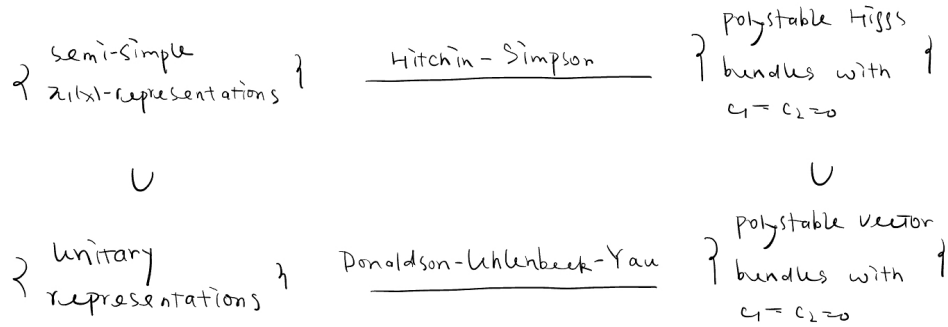 { semi-simple π₁(X)-representations } Hitchin - Simpson { polystable Higgs bundles with c₁ = c₂ = 0 }
∪ ∪
{ Unitary representations } Donaldson-Uhlenbeck-Yau { polystable vector bundles with c₁ = c₂ = 0 }